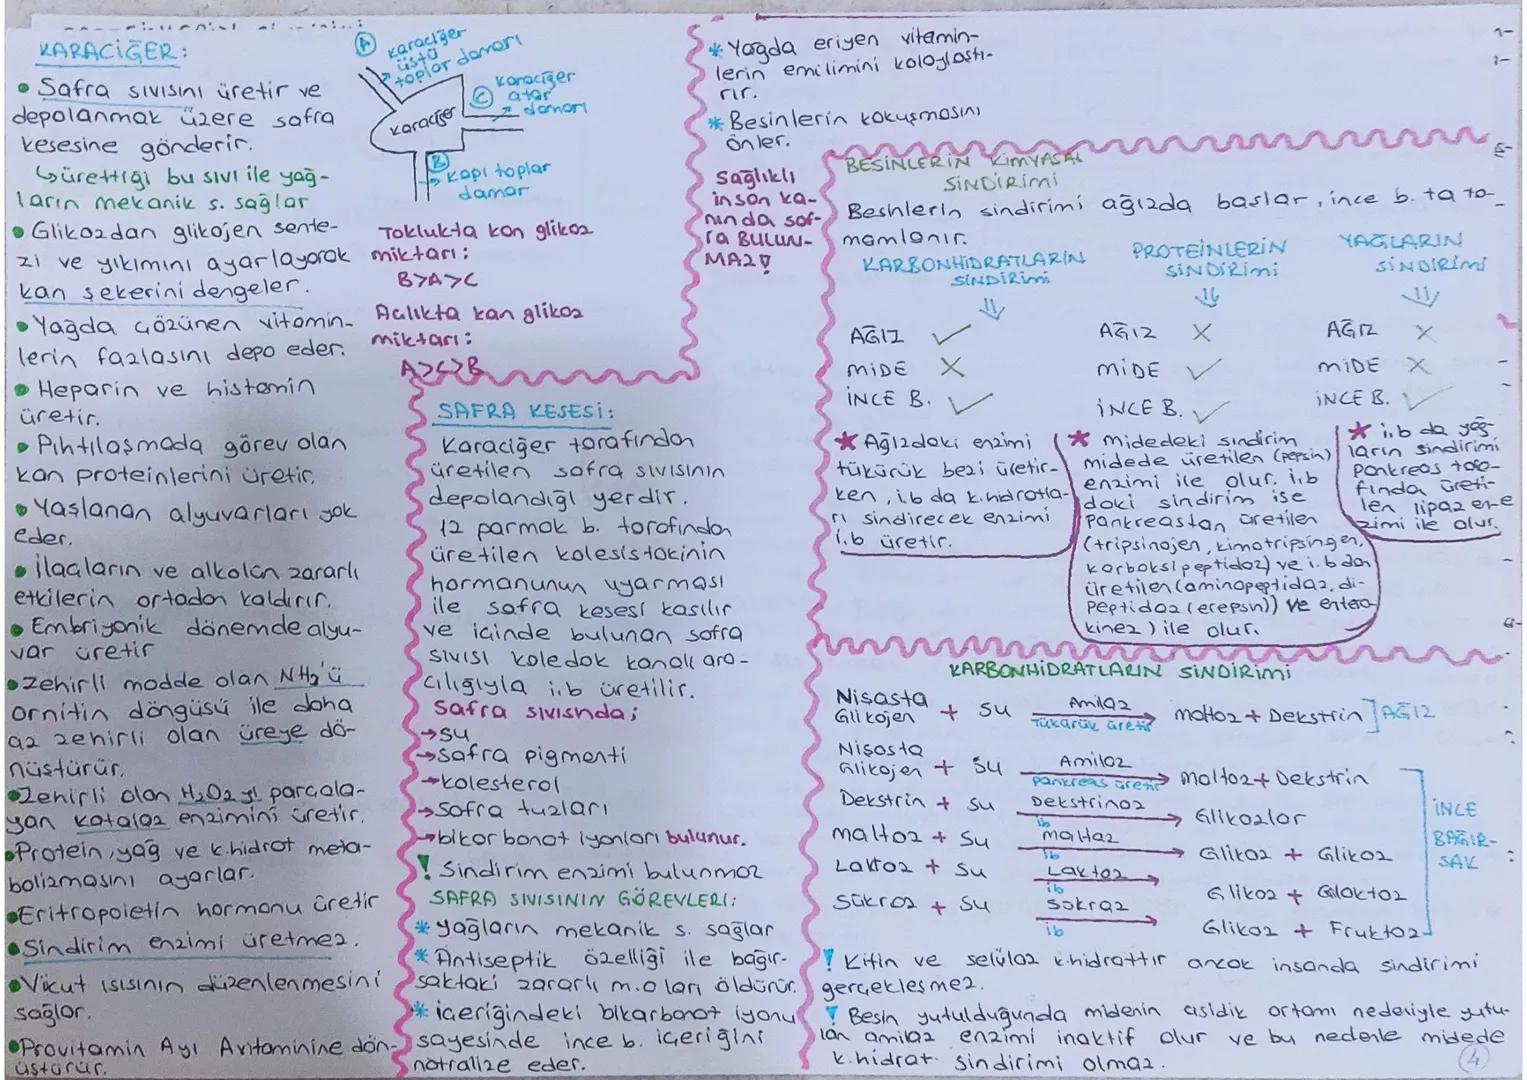 KARACİĞER:
• Safra sıvısını üretir ve
depolanmak üzere safra
kesesine gönderir.
↳ürettiği bu sıvı ile yağ-
ların mekanik s. sağlar
• Glikozdan glikojen sente-
zi ve yıkımını ayarlayarak
kan şekerini dengeler.
• Yağda çözünen vitamin-
lerin fazlasını depo eder.
• Heparin ve histamin
üretir.
• Pıhtılaşmada görev olan
kan proteinlerini üretir.
• Yaşlanan alyuvarları yok
eder.
• İlaçların ve alkolün zararlı
etkilerin ortadan kaldırır.
• Embriyonik dönemde alyu-
var üretir
• Zehirli madde olan NH3'ü
ornitin döngüsü ile daha
az zehirli olan üreye dö-
nüştürür.
• Zehirli olan H2O2 yi parçala-
yan katalaz enzimini üretir.
• Protein, yağ ve k.hidrat meta-
bolizmasını ayarlar.
• Eritropoietin hormonu üretir
• Sindirim enzimi üretmez.
• Vücut ısısının düzenlenmesini
sağlar.
• Provitamin A yı A vitaminine dön-
üştürür.
A
Karaciğer
üstü
toplar damarı
C
Karaciğer
atar
damarı
Karaciğer
B
Kapı toplar
damar
Toklukta kan glikoz
miktarı:
B>A>C
Açlıkta kan glikoz
miktarı:
A>C>B
SAFRA KESESİ:
Karaciğer tarafından
üretilen safra sıvısının
depolandığı yerdir.
12 parmak b. tarafından
üretilen kolesistokinin
hormanunun uyarması
ile safra kesesi kasılır
ve içinde bulunan safra
sıvısı koledok kanalı ara-
cılığıyla i.b üretilir.
Safra sıvısında;
→su
→Safra pigmenti
→kolesterol
→safra tuzları
→bikarbonat iyonları bulunur.
! Sindirim enzimi bulunmaz
SAFRA SIVISININ GÖREVLERİ:
* Yağların mekanik s. sağlar
* Antiseptik özelliği ile bağır-
saktaki zararlı m.o ları öldürür.
* içeriğindeki bikarbonat iyonu
sayesinde ince b. içeriğini
nötralize eder.
* Yağda eriyen vitamin-
lerin emilimini kolaylaştı-
rır.
* Besinlerin kokuşmasını
önler.
Sağlıklı
insan ka-
nında saf-
ra BULUN-
MAZ!
BESİNLERİN KİMYASAL
SİNDİRİMİ
Besinlerin sindirimi ağızda başlar, ince b. ta ta-
mamlanır.
KARBONHİDRATLARIN
SİNDİRİMİ
AĞIZ ✓
MİDE X
İNCE B. ✓
* Ağızdaki enzimi
tükürük bezi üretir-
ken, i.b da k.hidratla-
rı sindirecek enzimi
i.b üretir.
PROTEİNLERİN
SİNDİRİMİ
AĞIZ X
MİDE ✓
İNCE B. ✓
* Midedeki sindirim
midede üretilen (pepsin)
enzimi ile olur. i.b
daki sindirim ise
Pankreastan üretilen
(tripsinojen, kimotripsinojen,
karboksipeptidaz) ve i.b dan
üretilen (aminopeptidaz, di-
peptidaz (erepsin)) ve entero
kinez) ile olur.
YAĞLARIN
SİNDİRİMİ
AĞIZ X
MİDE X
İNCE B. ✓
* i.b da yağ-
ların sindirimi
pankreas tara-
fında üreti-
len lipaz en-
zimi ile olur.
KARBONHİDRATLARIN SİNDİRİMİ
Nişasta
Glikojen + Su Amilaz Tükürük üretir → maltoz + Dekstrin ] AĞIZ
Nişasta
Glikojen + Su Amilaz pankreas üretir → Maltoz + Dekstrin
Dekstrin + Su Dekstrinaz ib → Glikozlar
Maltoz + Su maltaz ib → Glikoz + Glikoz
Laktoz + Su Laktaz ib → Glikoz + Galaktoz
Sükroz + Su Sükraz ib → Glikoz + Fruktoz
İNCE
BAĞIR-
SAK
! Kitin ve selüloz k.hidrattır ancak insanda sindirimi
gerçekleşmez.
! Besin yutulduğunda midenin asidik ortamı nedeniyle yutu-
lan amilaz enzimi inaktif olur ve bu nedenle midede
k.hidrat sindirimi olmaz.
4